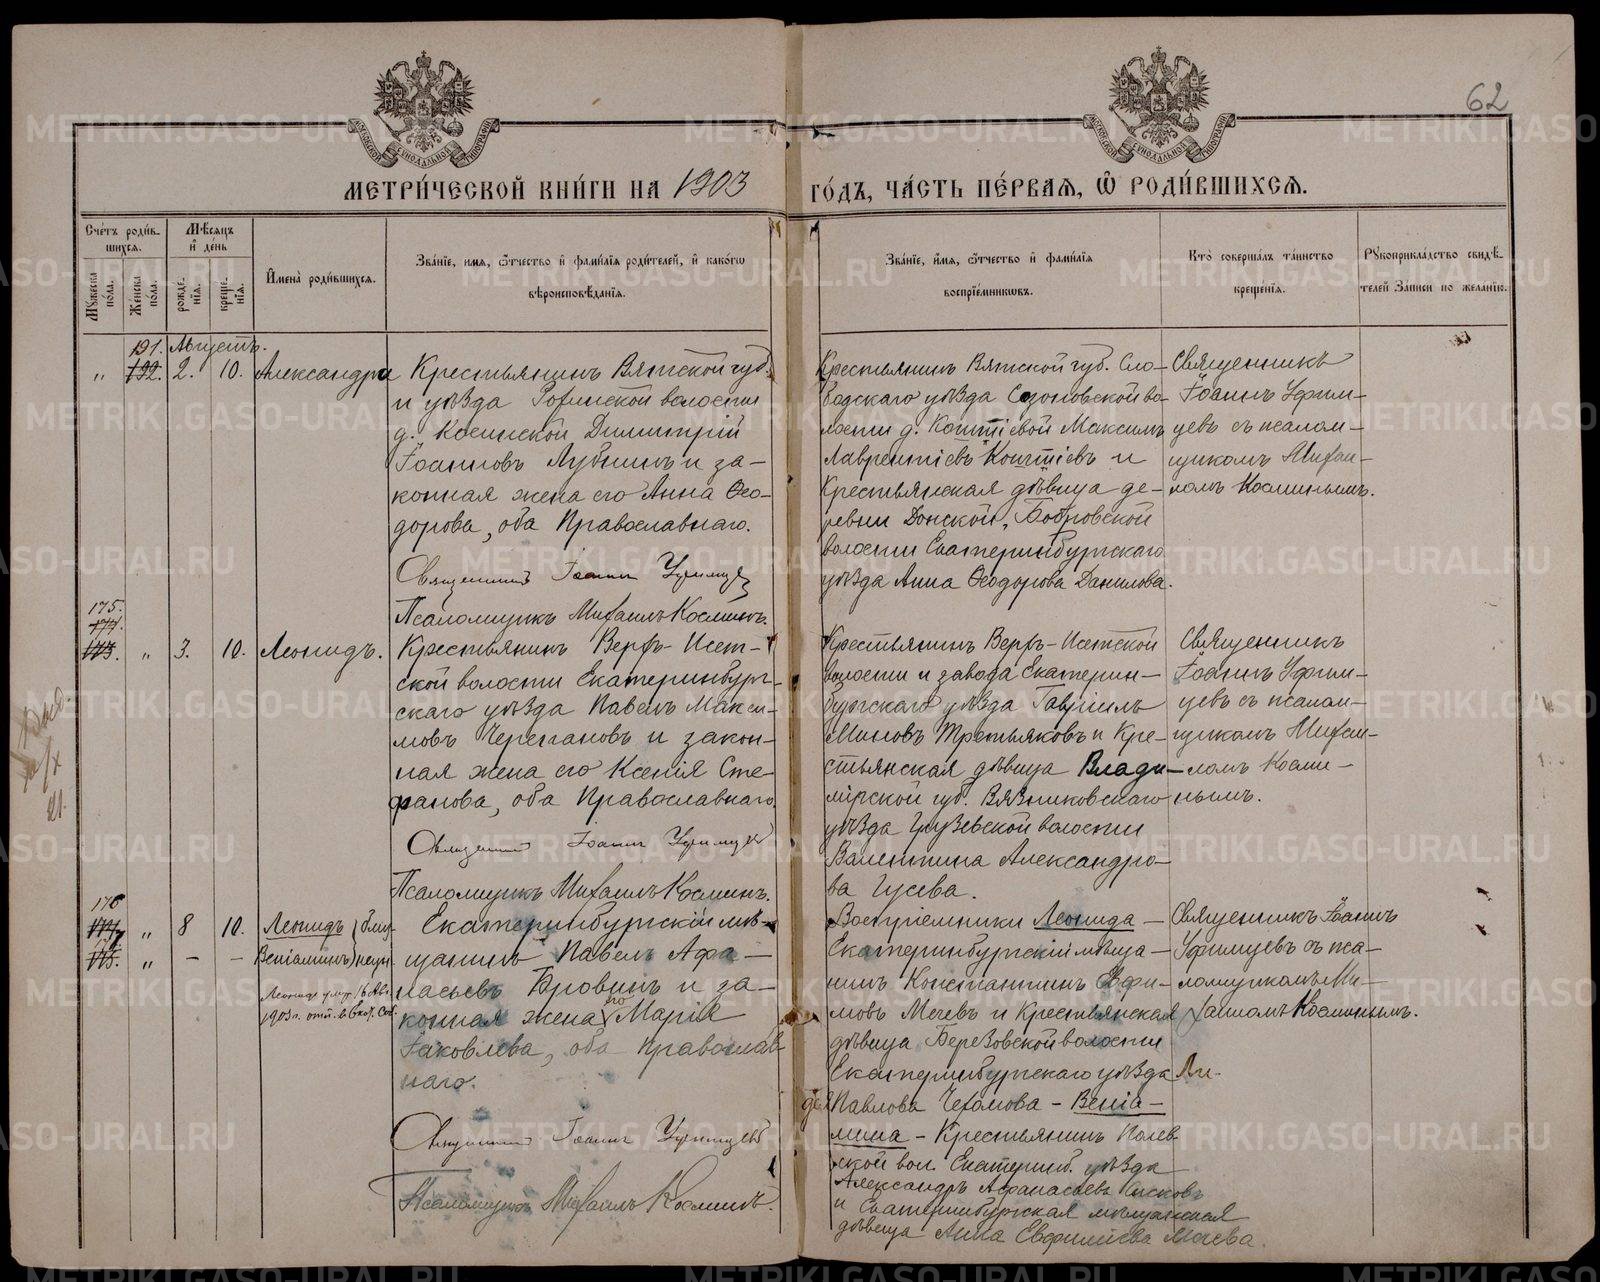 62
МЕТРИ́ЧЕСКОЙ КНИ́ГИ НА 1903 ГО́ДЪ, ЧА́СТЬ ПЕ́РВАЯ, Ѡ РОДИ́ВШИХСЯ.
Сче́тъ роди́в-
шихся.
Мѹжеска по́ла.
Же́нска по́ла.
Мѣ́сяцъ
и де́нь
рожде-
нія.
креще-
нія.
Имена̀ роди́вшихся.
Зва́нїе, имя, ѻтчество и фами́лїя роди́телей, и како́гѡ
вѣроисповѣ́данїя.
Зва́нїе, и́мя, ѻтчество и фами́лїя
воспрїе́мникѡвъ.
Кто̀ соверша́лъ та́инство
креще́нїя.
Рꙋкоприкла́дство свидѣ́-
телей за́писи по жела́нїю.
191. Августъ.
" 192. 2. 10. Александра
Крестьянинъ Вятской губ.
и уѣзда
волости
д. Косинской Димитрій
Іоанновъ Лубнинъ и за-
конная жена его Анна Ѳео-
дорова, оба Православнаго.
Священникъ Іоаннъ Уфимцевъ
Псаломщикъ Михаилъ Косминъ.
Крестьянинъ Вятской губ. Сло-
бодскаго уѣзда
во-
лости д.
Максимъ
Лаврентіевъ
и
Крестьянская дѣвица де-
ревни Донской, Бобровской
волости Екатеринбургскаго
уѣзда Анна Ѳеодорова Данилова.
Священникъ
Іоаннъ Уфим-
цевъ съ псалом-
щикомъ Михаи-
ломъ Косминымъ.
175.
174.
173. " 3. 10. Леонидъ.
Крестьянинъ Верхъ-Исет-
ской волости Екатеринбург-
скаго уѣзда Павелъ Макси-
мовъ Черепановъ и закон-
ная жена его Ксенія Сте-
фанова, оба Православнаго.
Священникъ Іоаннъ Уфимцевъ
Псаломщикъ Михаилъ Косминъ.
Крестьянинъ Верхъ-Исетской
волости и завода Екатерин-
бургскаго уѣзда Гавріилъ
Миновъ Третьяковъ и Кре-
стьянская дѣвица Влади-
мірской губ. Вязниковскаго
уѣзда
волости
Валентина Александро-
ва Гусева.
Священникъ
Іоаннъ Уфим-
цевъ съ псалом-
щикомъ Михаи-
ломъ Косми-
нымъ.
176
174. " 8 10. Леонидъ } близ-
177
175. " - - Веніаминъ } нецы
Леонидъ умер. 16 Авг.
1903 г. отп. в Екат. Соб.
Екатеринбургскій мѣ-
щанинъ Павелъ Афа-
насьевъ Бровинъ и за-
конная жена его Марія
Іаковлева, оба Православ-
наго.
Священникъ Іоаннъ Уфимцевъ
Псаломщикъ Михаилъ Косминъ.
Воспріемники Леонида -
Екатеринбургскій мѣща-
нинъ Константинъ Евфи-
мовъ Мечевъ и Крестьянская
дѣвица Березовской волости
Екатеринбургскаго уѣзда Ли-
дія Павлова
- Веніа-
мина - Крестьянинъ Полев-
ской вол. Екатеринб. уѣзда
Александръ Афанасьевъ
и Екатеринбургская мѣщанская
дѣвица Анна Евфиміева Мечева.
Священникъ Іоаннъ
Уфимцевъ съ пса-
ломщикомъ Ми-
хаиломъ Косминымъ.
METRIKI.GASO-URAL.RU